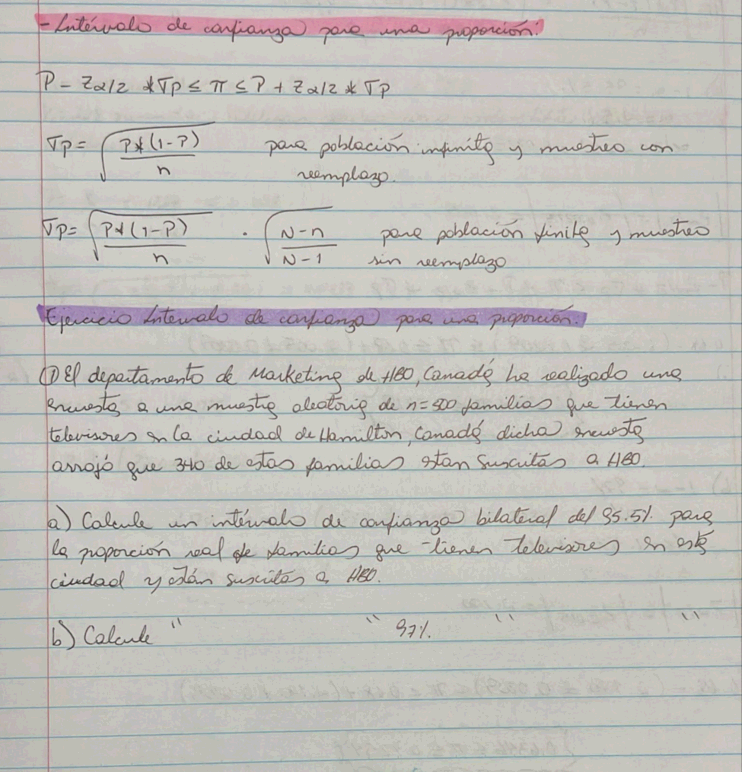 - Intérvalo de confianza para una proporción:
P - Zα/2 * σp ≤ π ≤ P + Zα/2 * σp
σp = √(P*(1-P)/n) para población infinita y muestreo con
reemplazo.
σp = √(P*(1-P)/n) · √(N-n/N-1) para población finita y muestreo
sin reemplazo
Ejercicio Intervalo de confianza para una proporción.
① El departamento de Marketing de HBO, Canadá ha realizado una
encuesta a una muestra aleatoria de n=500 familias que tienen
televisores en la ciudad de Hamilton, Canadá dicha encuesta
arrojó que 340 de estas familias estan suscritas a HBO.
a) Calcule un intérvalo de confianza bilateral del 95.5% para
la proporción real de familias que tienen televisores en esta
ciudad y están suscitas a HBO.
b) Calcule " " 97% " "